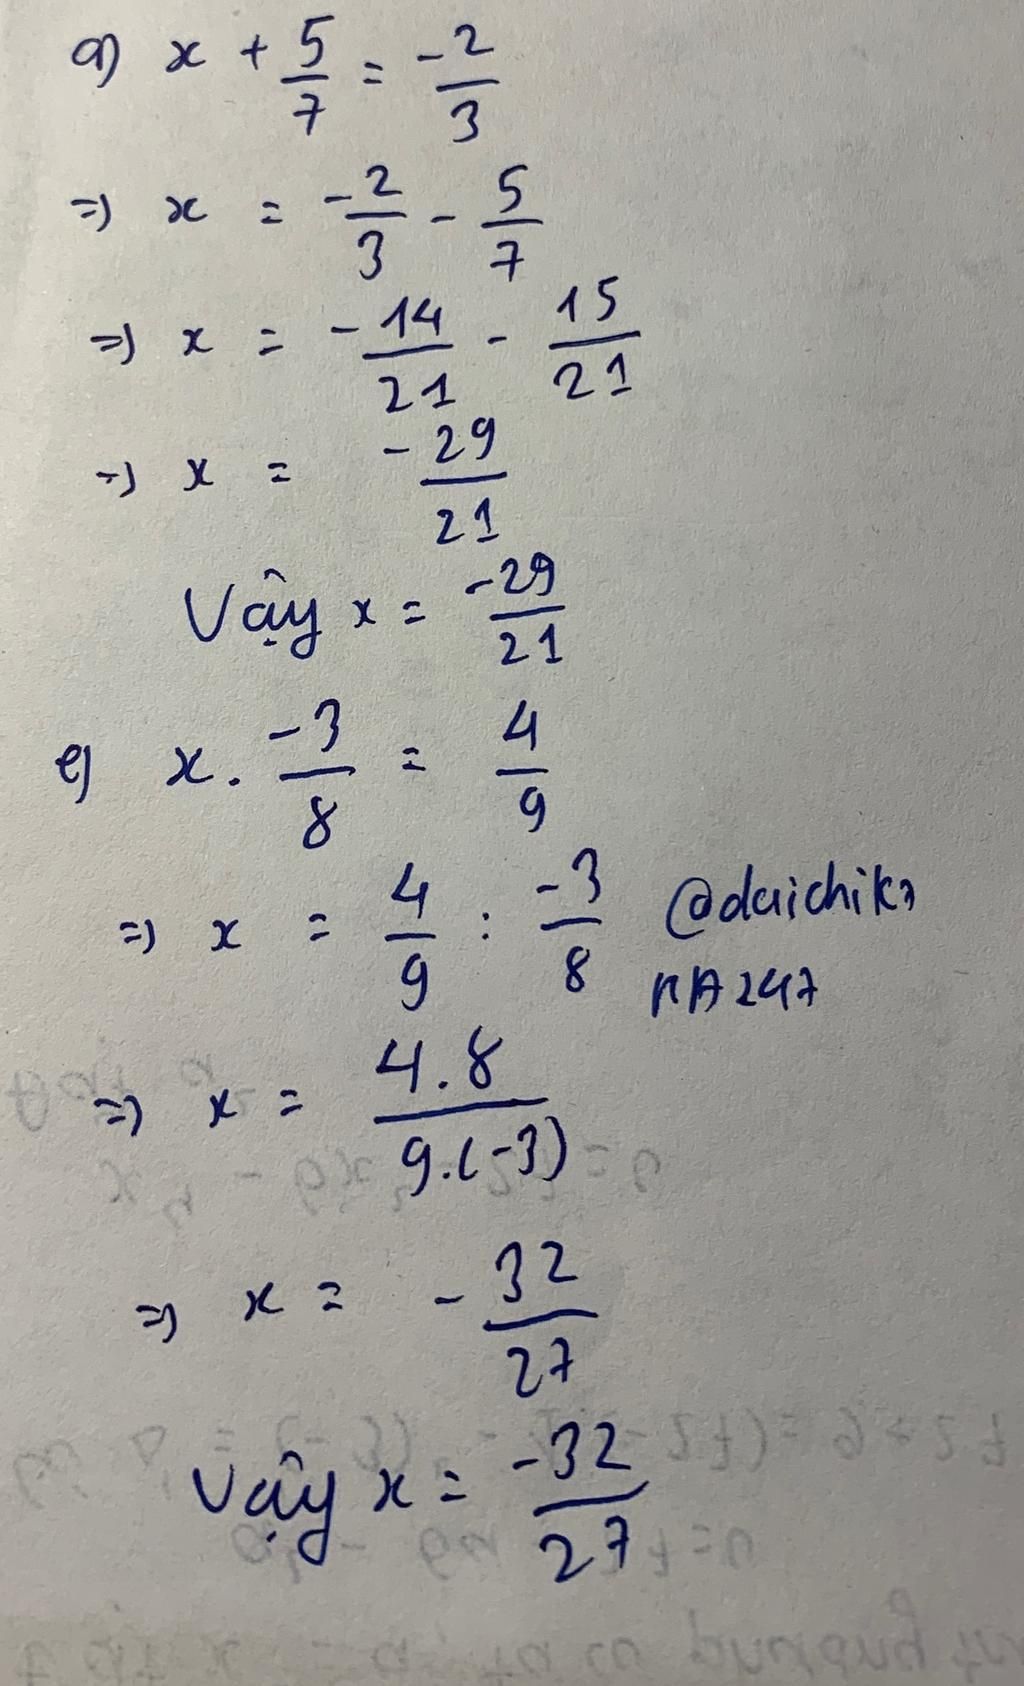 a) x + 5/7 = -2/3
=> x = -2/3 - 5/7
=> x = -14/21 - 15/21
=> x = -29/21
Vậy x = -29/21
e) x . -3/8 = 4/9
=> x = 4/9 : -3/8 @daichika
=> x = 4.8/9.(-3)
=> x = -32/27
Vậy x = -32/27